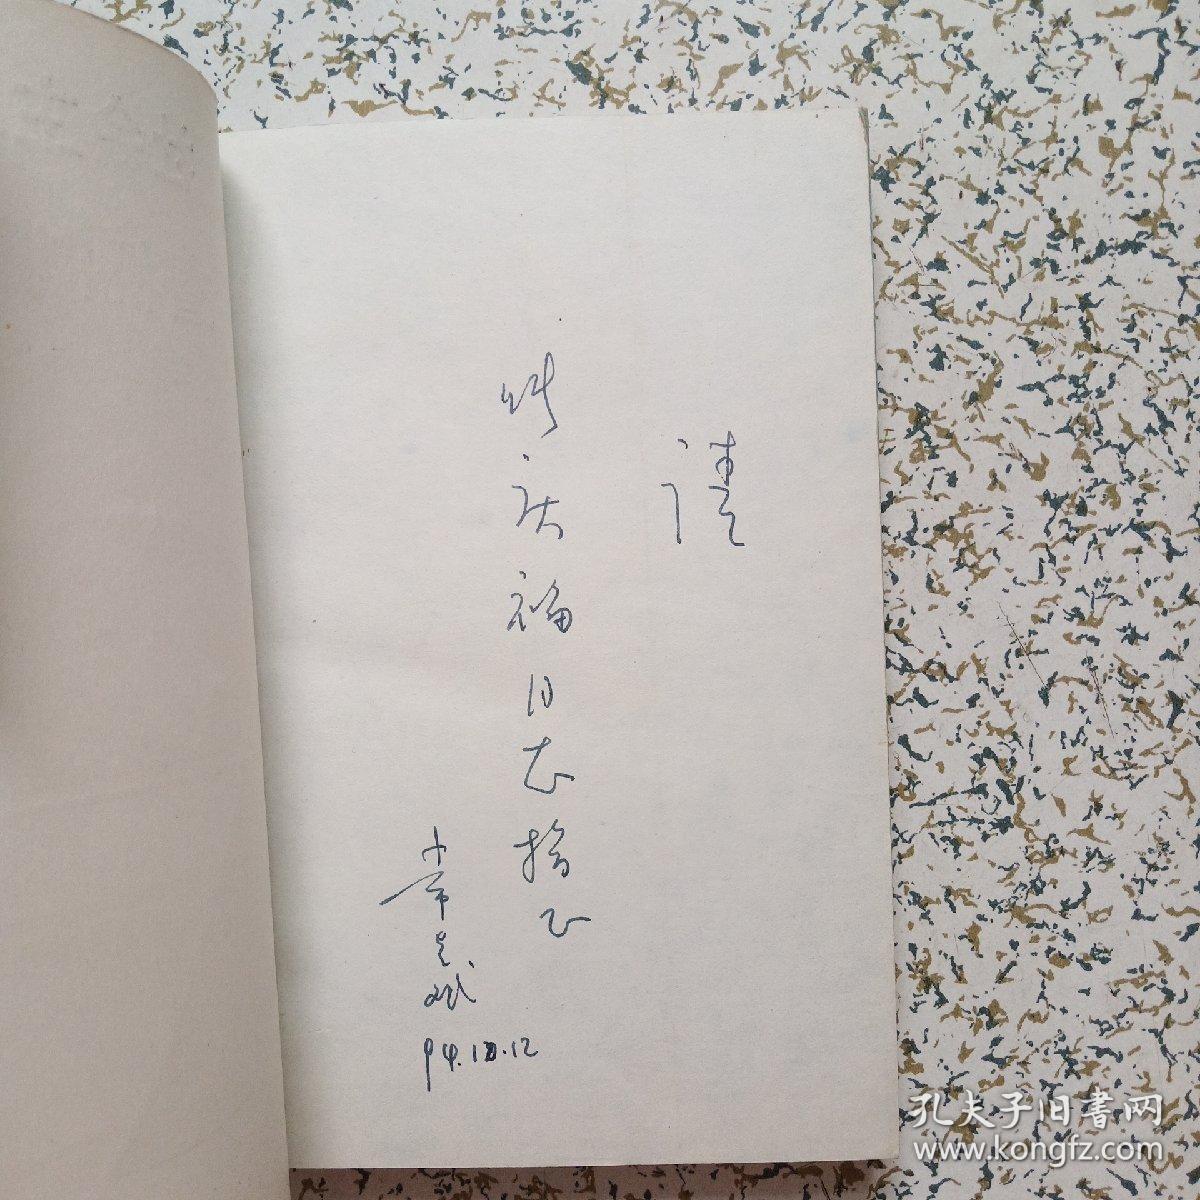 请
庆福同志指正
常
94.10.12
孔夫子旧书网
www.kongfz.com